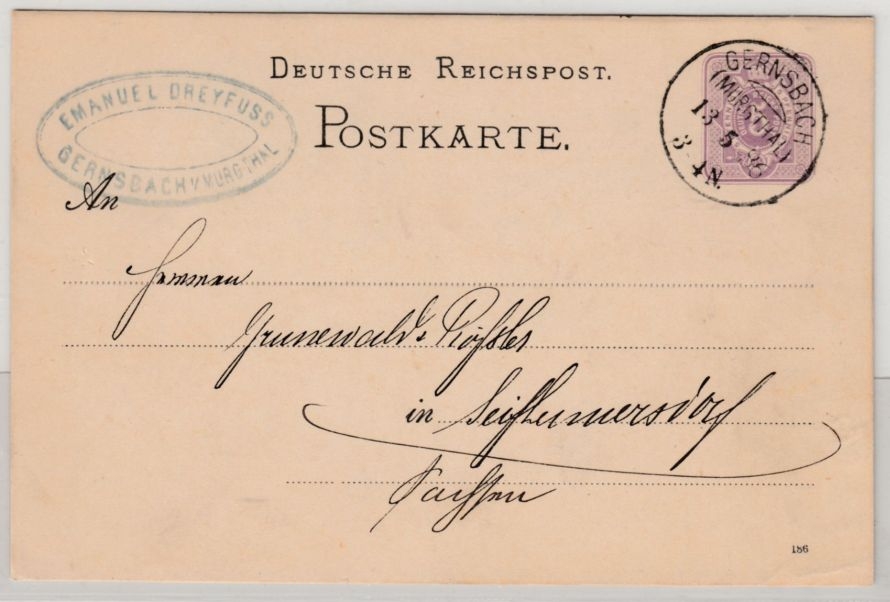 DEUTSCHE REICHSPOST.
POSTKARTE.
EMANUEL DREYFUSS
GERNSBACH I/MURGTHAL
GERNSBACH
(MURGTHAL)
13 5 86
3-4 N.
An
Herrren
Grunewald & Rößler
in Seifhennersdorf
Sachsen
186